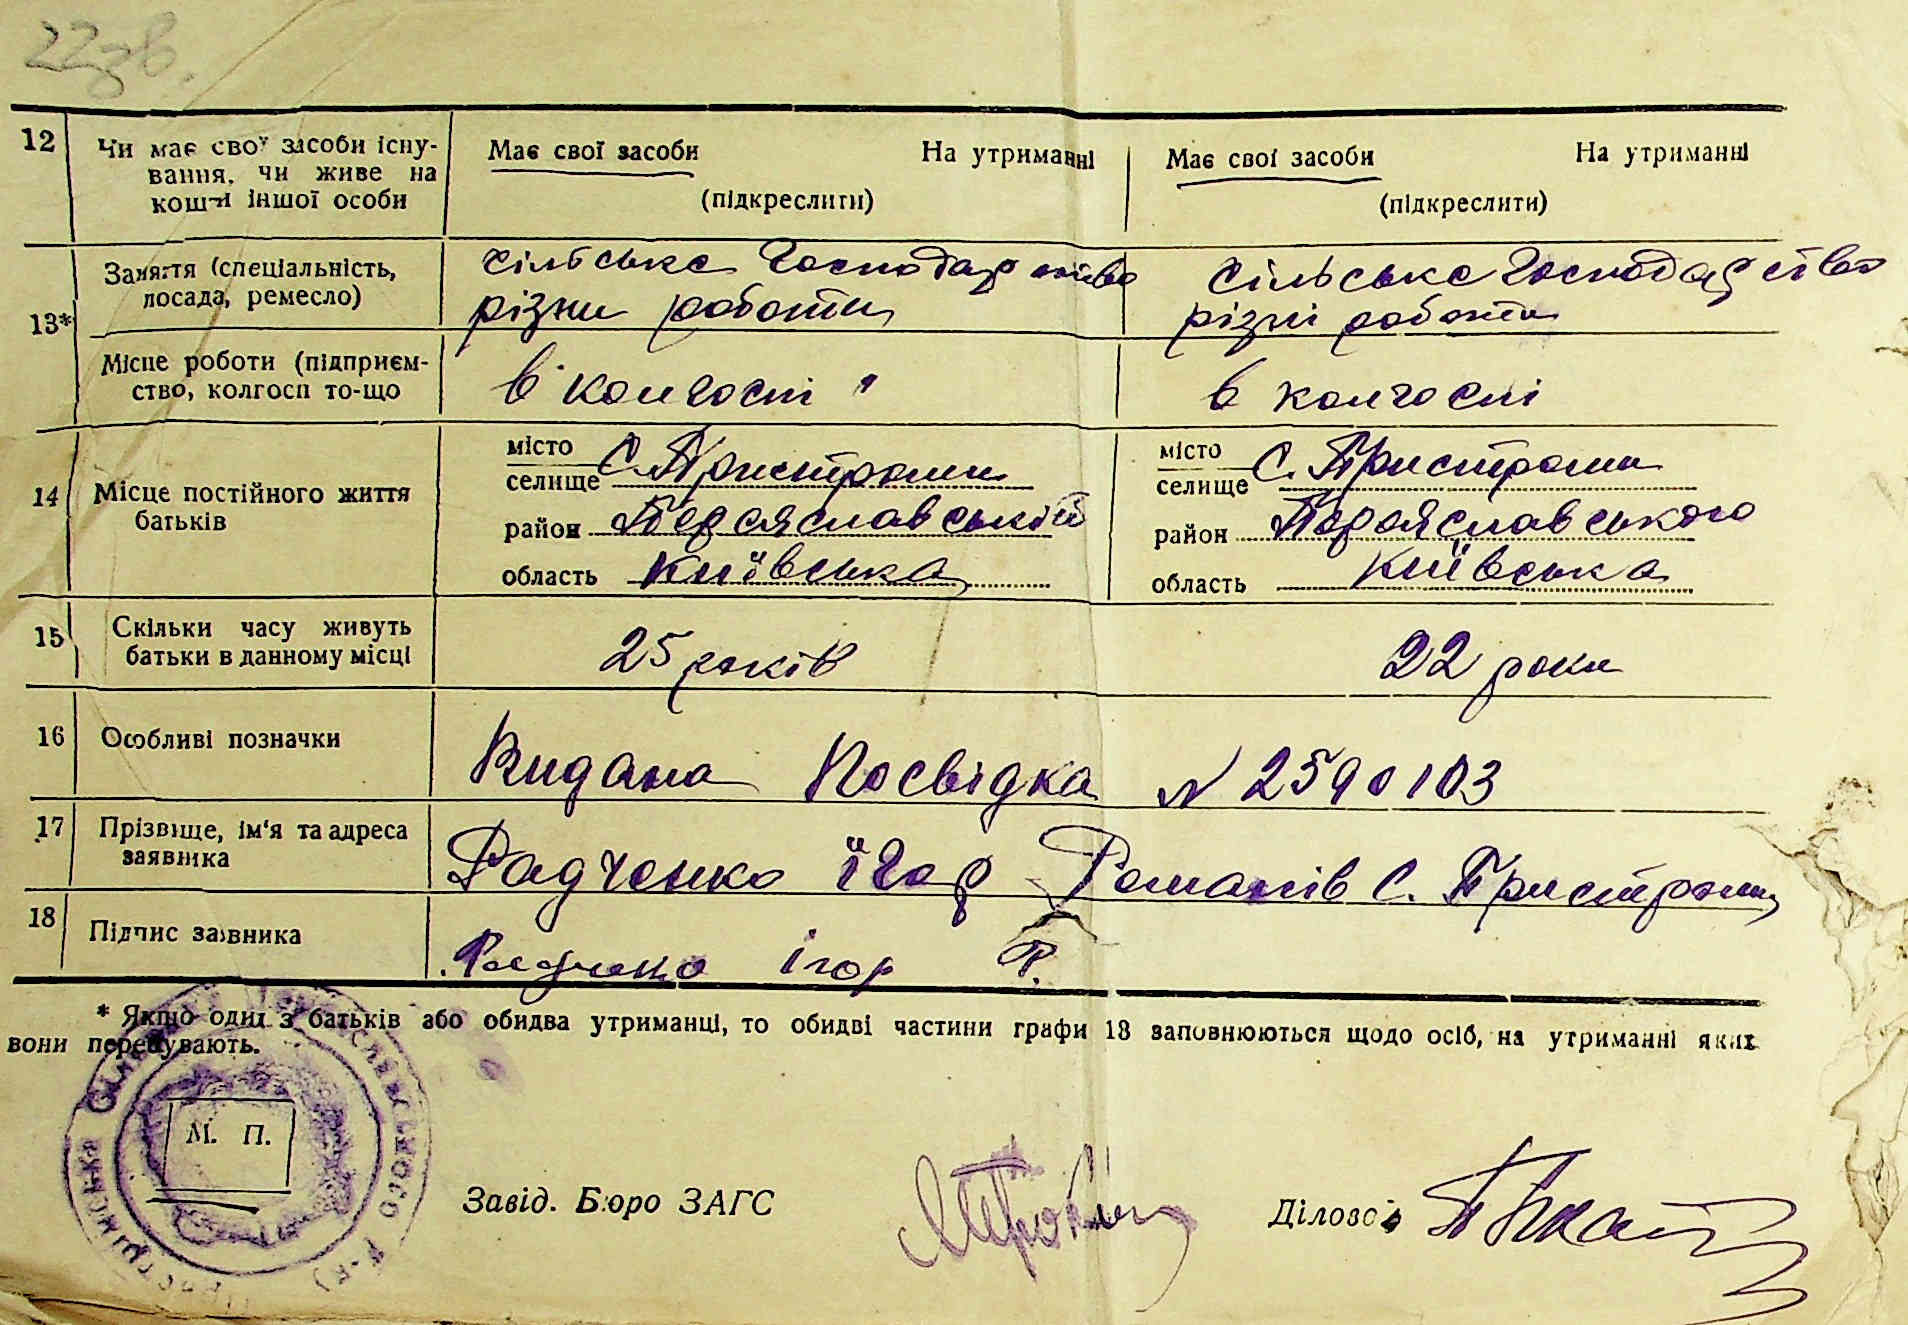 12 Чи має свої засоби існу-
вання, чи живе на
кошти іншої особи
Має свої засоби На утриманні
(підкреслити)
Має свої засоби На утриманні
(підкреслити)
13*
Заняття (спеціальність,
посада, ремесло)
сільське господарство
різни роботи
сільське господарство
різні роботи
Місце роботи (підприєм-
ство, колгосп то-що
в колгоспі
в колгоспі
14 Місце постійного життя
батьків
місто
селище С. Пристроми
район Переяславський
область Київська
місто
селище С. Пристроми
район Переяславського
область Київська
15 Скільки часу живуть
батьки в данному місці
25 років
22 роки
16 Особливі позначки
Видана Посвідка N 2590103
17 Прізвище, ім'я та адреса
заявника
Радченко їгор Романів С. Пристроми
18 Підпис заявника
Радченко ігор Р.
* Якщо один з батьків або обидва утриманці, то обидві частини графи 13 заповнюються щодо осіб, на утриманні яких
вони перебувають.
М. П.
Завід. Бюро ЗАГС
Діловод